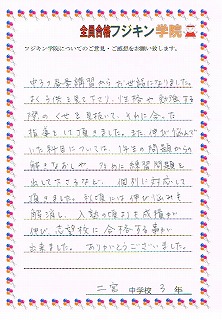 全員合格フジキン学院
フジキン学院についてのご意見・ご感想をお願い致します。
中3の春季講習からお世話になりました。
よく子供を見て下さり、性格や勉強する
際のくせを見抜いて、それに合った
指導をして頂きました。また伸び悩んで
いた科目については、1年生の問題からの
解きなおしや、ために練習問題を
出して下さるなど、個別に対応して
頂きました。お陰には伸び悩みも
解消し、入塾の頃より成績が
伸び、志望校に合格する事が
出来ました。ありがとうございました。
二宮 中学校 3 年